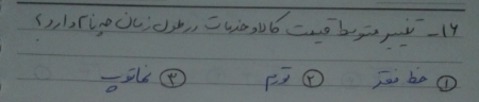 ۱۶- تغییر متوسط قیمت کالا و خدمات در طول زمان چه نام دارد؟
① خط فقر ② تورم ③